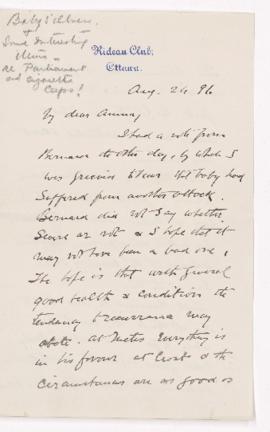 Baby's illness.
+
Some interesting
Items -
re Parliament
and cigarette
Cups!
Rideau Club,
Ottawa.
Aug. 26. 96
My dear Amma,
I had a note from
Bernard the other day, by which I
was grieved to hear that baby had
suffered from another attack.
Bernard did not say whether
severe or not & I hope that it
may not have been a bad one,
The hope is that with general
good health & condition the
tendency to recurrence may
abate. At Metis everything is
in his favour at least & the
circumstances are as good as